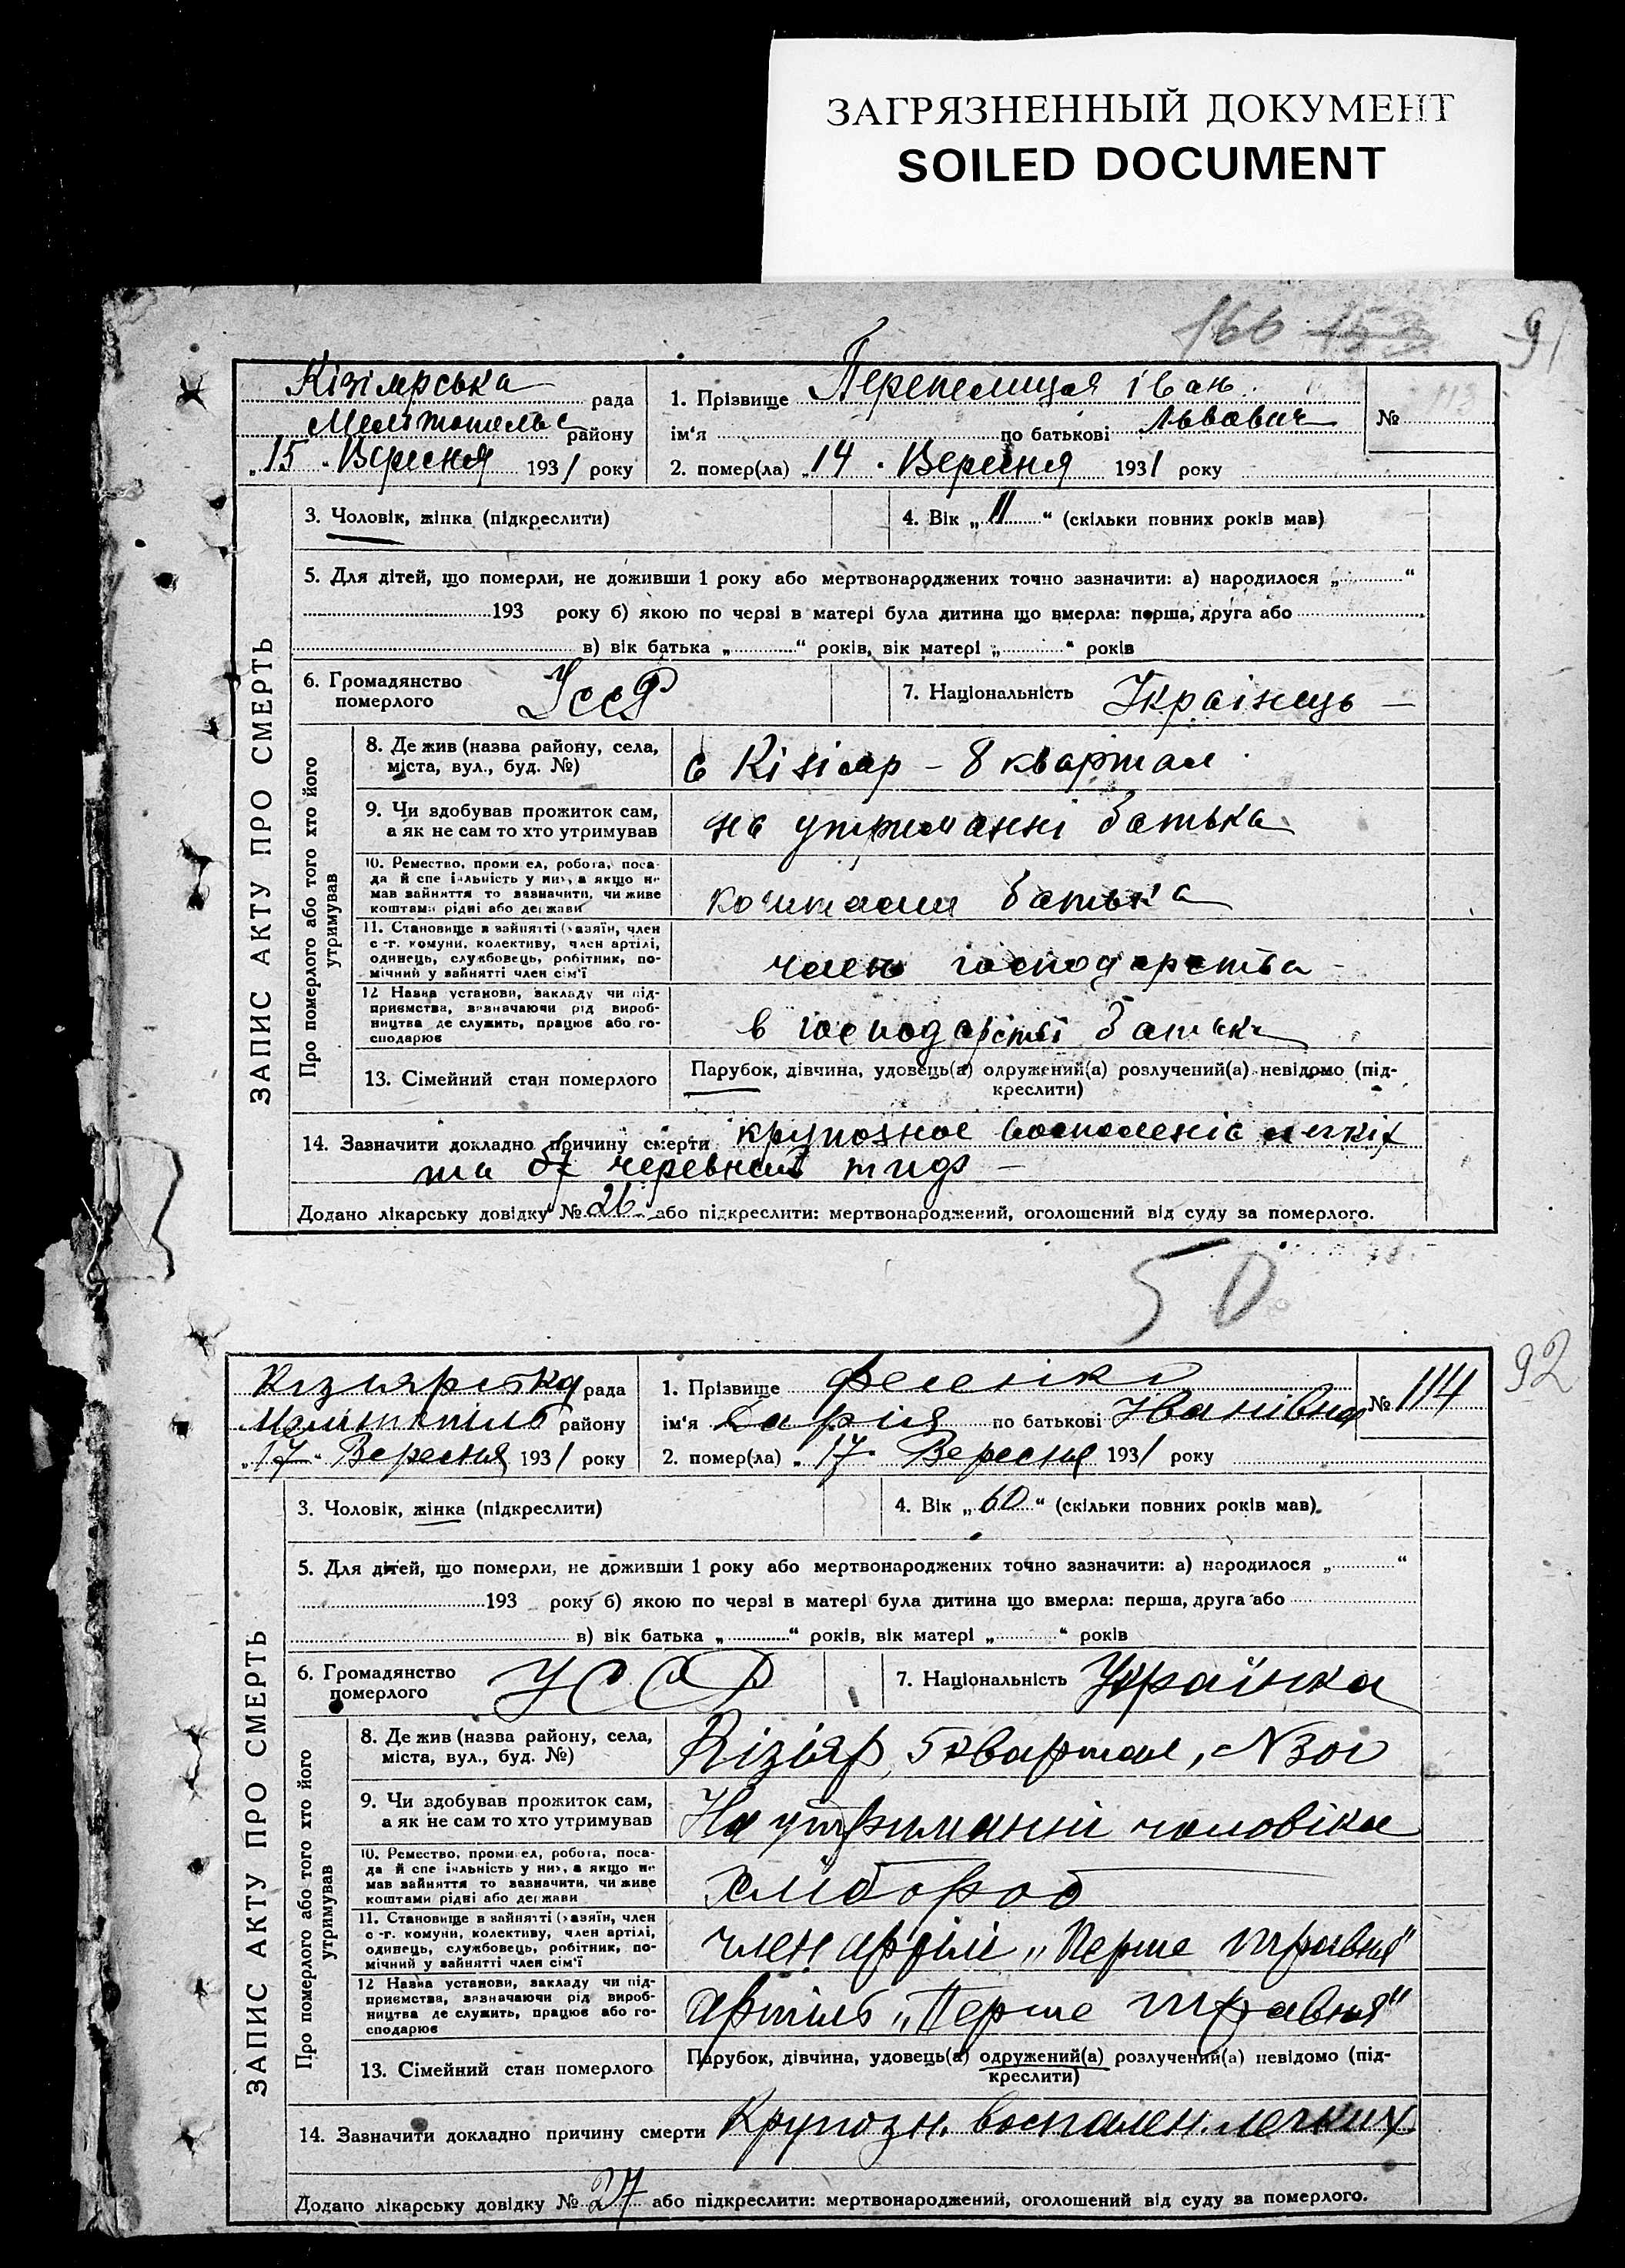 ЗАГРЯЗНЕННЫЙ ДОКУМЕНТ
SOILED DOCUMENT
166 153 91
Кізіярська рада
Мелітопольс району
„15 . Вересня 1931 року
1. Прізвище Перепелиця Іван
ім'я по батькові Львович
№ 113
2. помер(ла) „14 . Вересня 1931 року
ЗАПИС АКТУ ПРО СМЕРТЬ
3. Чоловік, жінка (підкреслити)
4. Вік „11“ (скільки повних років мав)
5. Для дітей, що померли, не доживши 1 року або мертвонароджених точно зазначити: а) народилося „ “
193 року б) якою по черзі в матері була дитина що вмерла: перша, друга або
в) вік батька „ “ років, вік матері „ “ років
6. Громадянство померлого УССР
7. Національність Українець —
Про померлого або того хто його утримував
8. Де жив (назва району, села, міста, вул., буд. №)
с Кізіяр – 8 квартал
9. Чи здобував прожиток сам, а як не сам то хто утримував
на утриманні батька
10. Ремество, промисел, робота, посада й спеціальність у них, а якщо не мав зайняття то зазначити, чи живе коштами рідні або держави
коштами батька
11. Становище в зайнятті (хазяїн, член с.-г. комуни, колективу, член артілі, одинець, службовець, робітник, помічний у зайнятті член сім'ї
член господарства
12 Назва установи, закладу чи підприємства, визначаючи рід виробництва де служить, працює або господарює
в господарстві батька
13. Сімейний стан померлого
Парубок, дівчина, удовець(а) одружений(а) розлучений(а) невідомо (підкреслити)
14. Зазначити докладно причину смерти крупозное восполеніе легкіх
та черевний тиф —
Додано лікарську довідку № 26 або підкреслити: мертвонароджений, оголошений від суду за померлого.
50
92
Кізіярська рада
Мелітопіль району
„17“ Вересня 1931 року
1. Прізвище Фесенко
ім'я Дарія по батькові Іванівна
№ 114
2. помер(ла) „17. Вересня 1931 року
ЗАПИС АКТУ ПРО СМЕРТЬ
3. Чоловік, жінка (підкреслити)
4. Вік „60“ (скільки повних років мав)
5. Для дітей, що померли, не доживши 1 року або мертвонароджених точно зазначити: а) народилося „ “
193 року б) якою по черзі в матері була дитина що вмерла: перша, друга або
в) вік батька „ “ років, вік матері „ “ років
6. Громадянство померлого УССР
7. Національність Українка
Про померлого або того хто його утримував
8. Де жив (назва району, села, міста, вул., буд. №)
Кізіяр, 5 квартал, N
9. Чи здобував прожиток сам, а як не сам то хто утримував
На утриманні чоловіка
10. Ремество, промисел, робота, посада й спеціальність у них, а якщо не мав зайняття то зазначити, чи живе коштами рідні або держави
хлібороб
11. Становище в зайнятті (хазяїн, член с.-г. комуни, колективу, член артілі, одинець, службовець, робітник, помічний у зайнятті член сім'ї
член артілі „Перше травня“
12 Назва установи, закладу чи підприємства, визначаючи рід виробництва де служить, працює або господарює
артіль „Перше травня“
13. Сімейний стан померлого
Парубок, дівчина, удовець(а) одружений(а) розлучений(а) невідомо (підкреслити)
14. Зазначити докладно причину смерти Крупозн. воспален. легких
Додано лікарську довідку № 27 або підкреслити: мертвонароджений, оголошений від суду за померлого.